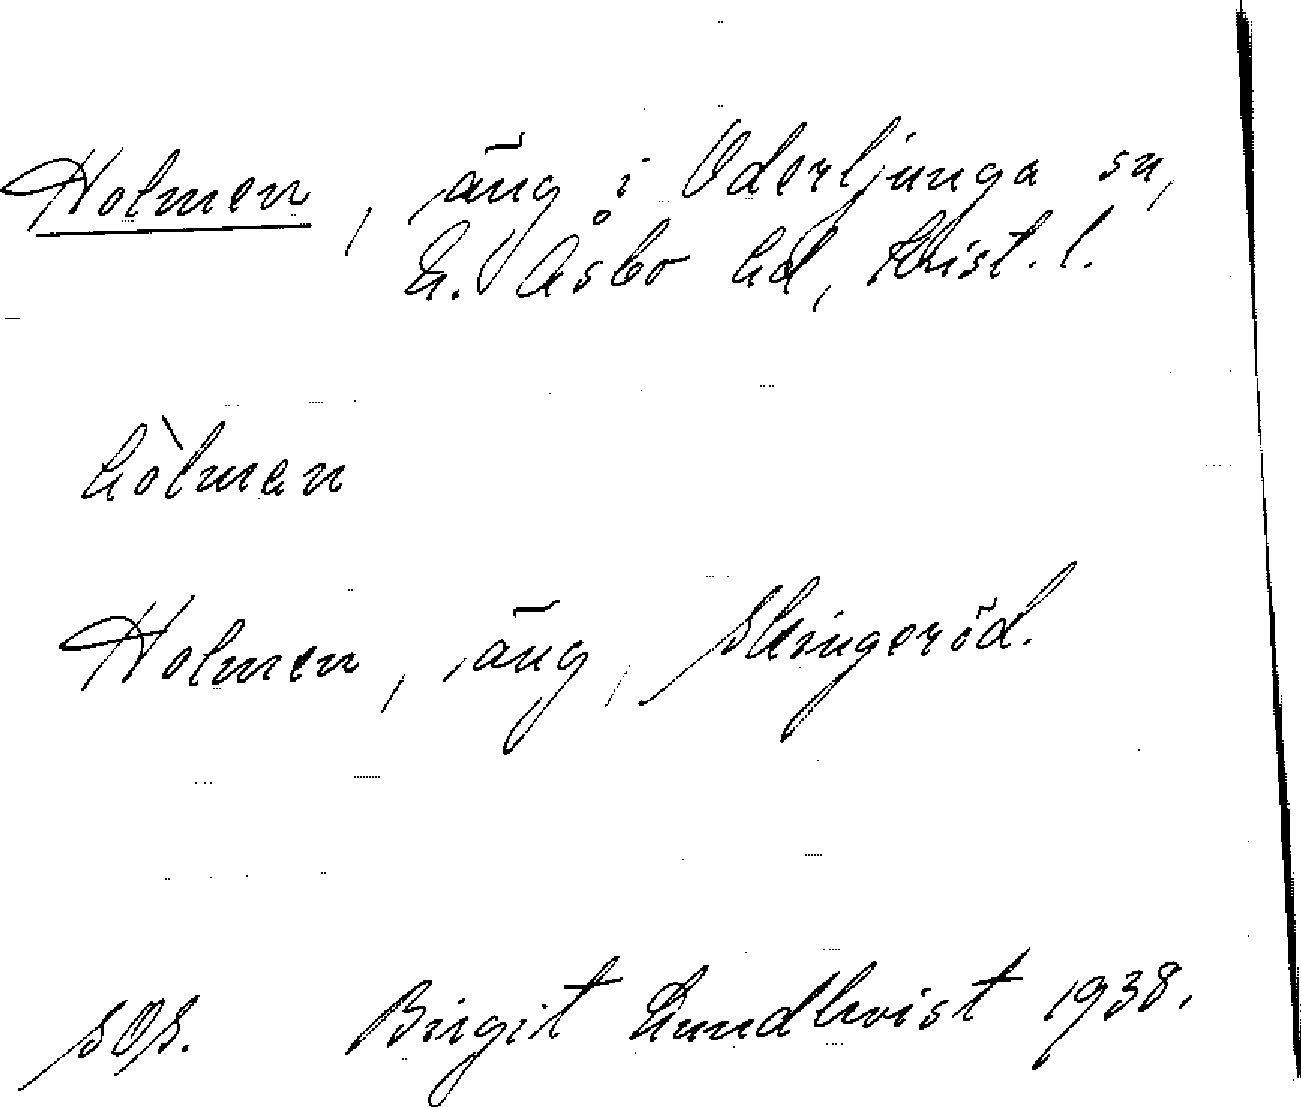 Holmen, äng i Oderljunga sn,
N. Åsbo hd, Krist. l.
hòlmen
Holmen, äng, Slingeröd.
Birgit Lundkvist 1938.